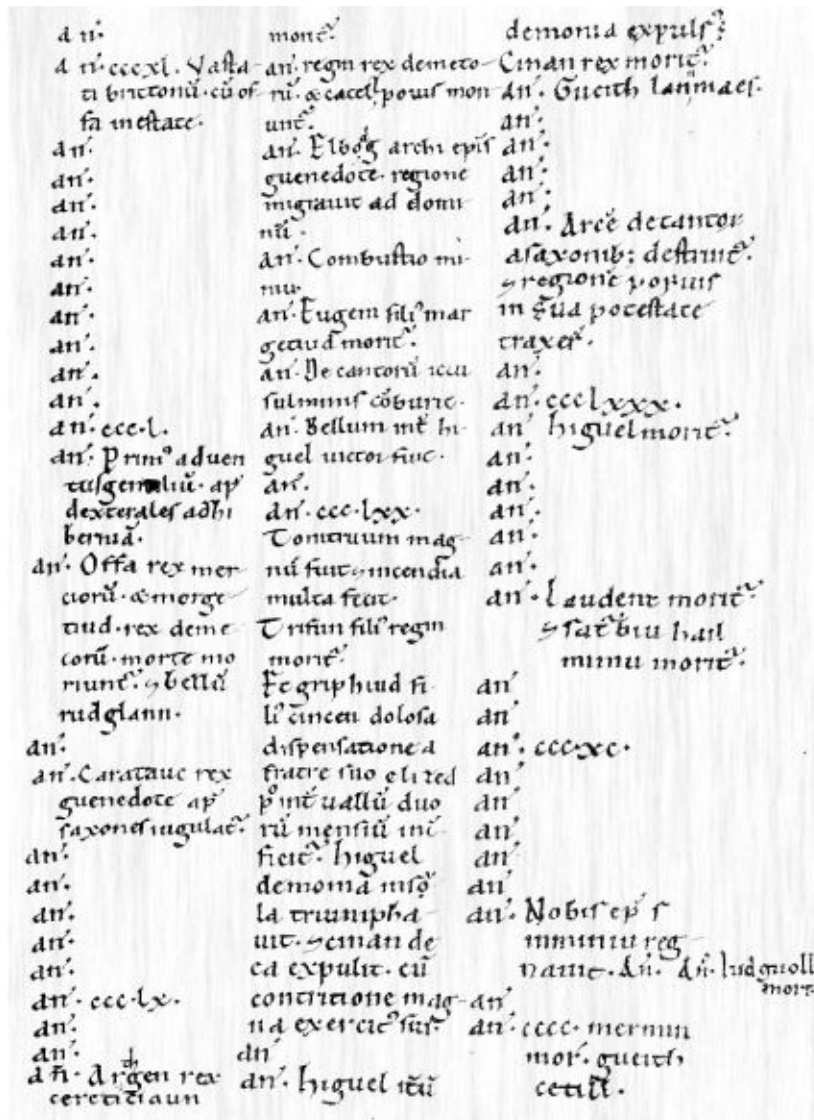 an.
an. cccxl. Vasta-
ti brittonū. cū of-
fa in estate.
an.
an.
an.
an.
an.
an.
an.
an.
an.
an.
an. ccc.l.
an. Prim⁹ aduen
tus gentiliū. ap̄
dexterales ad hi
berniā.
an. Offa rex mer
ciorū. & morge
tiud. rex deme
torū. morte mo
riunt̃. ⁊ bellū
rudglann.
an.
an. Caratauc rex
guenedote ap̄
saxones iugulat̃.
an.
an.
an.
an.
an.
an. ccc.lx.
an.
an.
an. Arthgen rex
cereticiaun
morit̃.
an. regin rex demeto-
rū. & catell powis mori
unt̃.
an. Elbodg archi epis
guenedote regione
migrauit ad domi
nū.
an. Combustio mi
niu.
an. Eugem fili⁹ mar
getiud morit̃.
an. De cantorū ictu
fulminis cōburit̃.
an. Bellum int̃ hi
guel uictor fuit.
an.
an. ccc.lxx.
Tonitruum mag
nū fuit ⁊ incendia
multa fecit.
Trifun fili⁹ regin
morit̃.
Et griphiud fi
li⁹ cincen dolosa
dispensatione a
fratre suo elized
p⁹ int̃uallū duo
rū mensiū int̃
ficit̃. higuel
demonia insō
la triumpha
uit. ⁊ cinan de
ea expulit. cū
contritione mag-
na exercit⁹ sui.
an
an. higuel itū
demonia expuls⁹:
Cinan rex morit̃.
an. Gueith lannmaes.
an.
an.
an.
an.
an. Arcē detantor
a saxonib: destruit̃.
⁊ regionē poyuis
in sua potestate
traxer̃.
an.
an. ccclxxx.
an higuel morit̃.
an.
an.
an.
an.
an.
an. laudent morit̃
⁊ sat̃biu hail
miniu morit̃.
an
an
an. ccc.xc.
an
an
an
an
an
an. Nobis ep̄ s
miniuiu reg
nauit. an. an. Iudguoll
morit̃
an
an. cccc. mermin
mor̃. gueith
cetill.